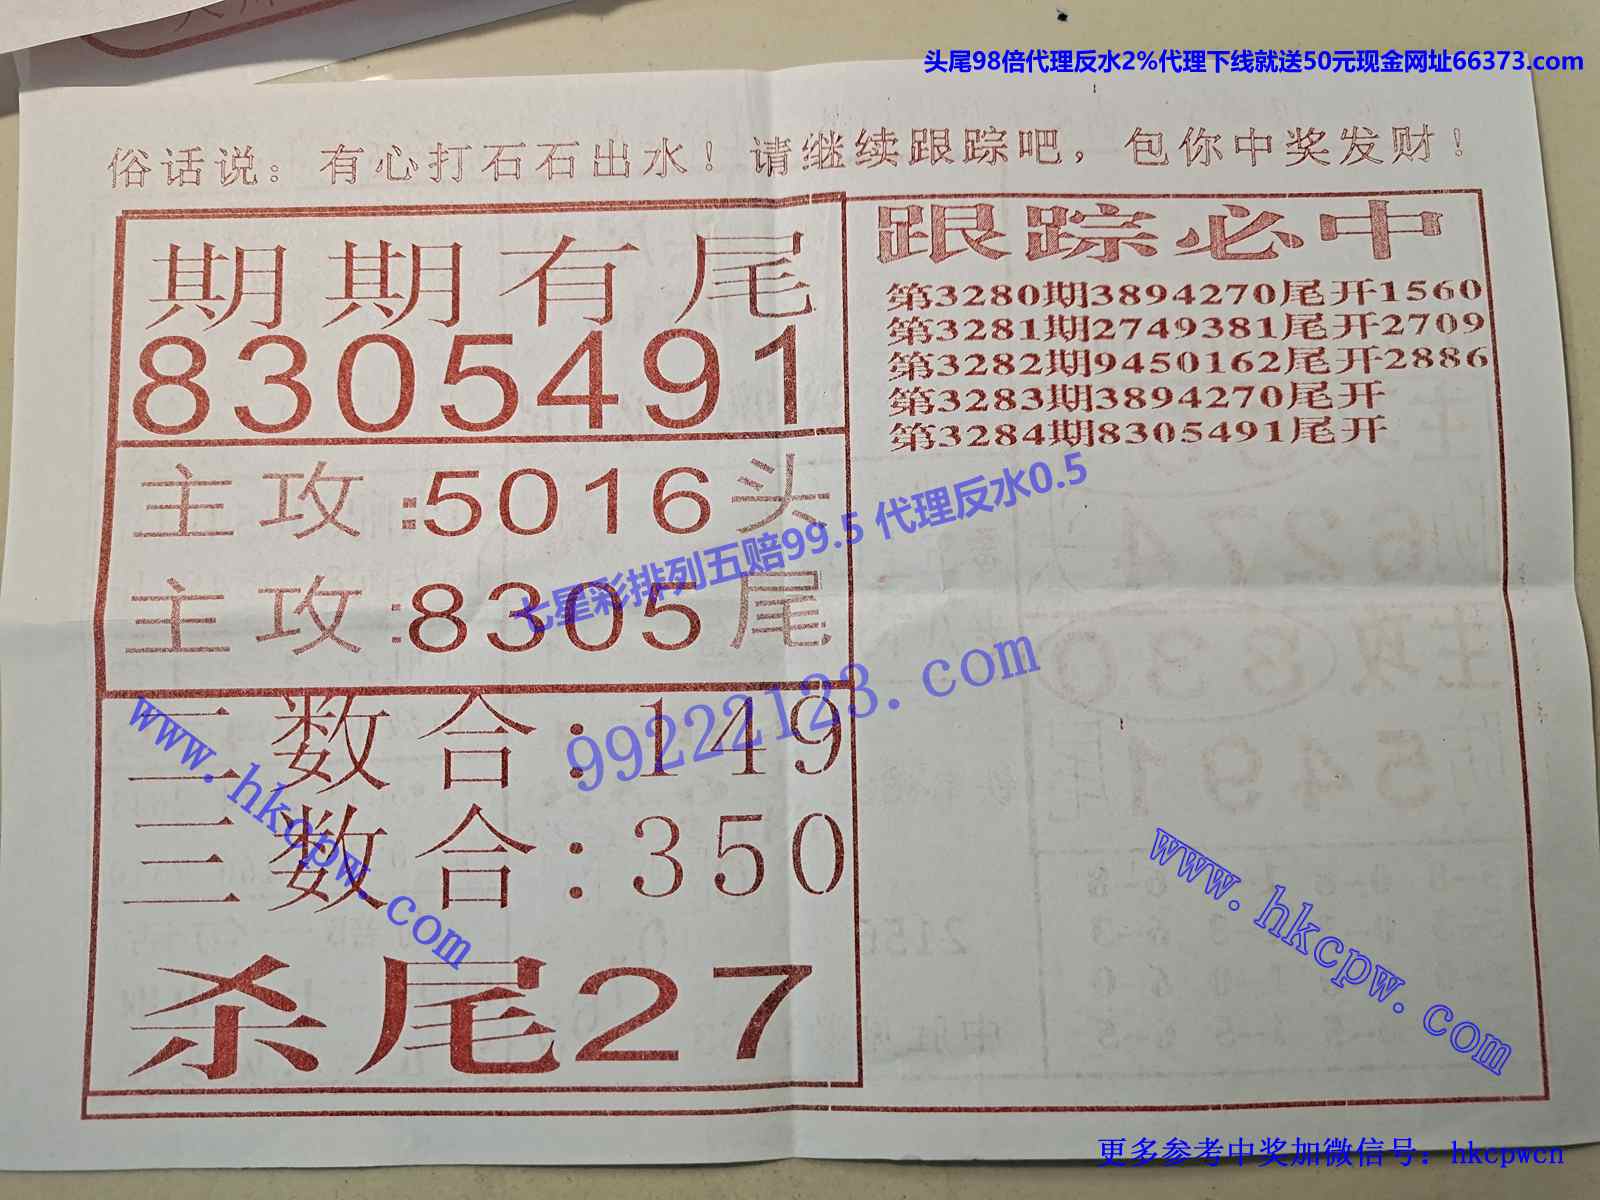 头尾98倍代理反水2%代理下线就送50元现金网址66373.com
俗话说：有心打石石出水！请继续跟踪吧，包你中奖发财！
期期有尾
8305491
主攻:5016头
主攻:8305尾
二数合:149
三数合:350
杀尾27
跟踪必中
第3280期3894270尾开1560
第3281期2749381尾开2709
第3282期9450162尾开2886
第3283期3894270尾开
第3284期8305491尾开
七星彩排列五赔99.5 代理反水0.5
99222123.com
www.hkcpw.com
www.hkcpw.com
更多参考中奖加微信号：hkcpwcn